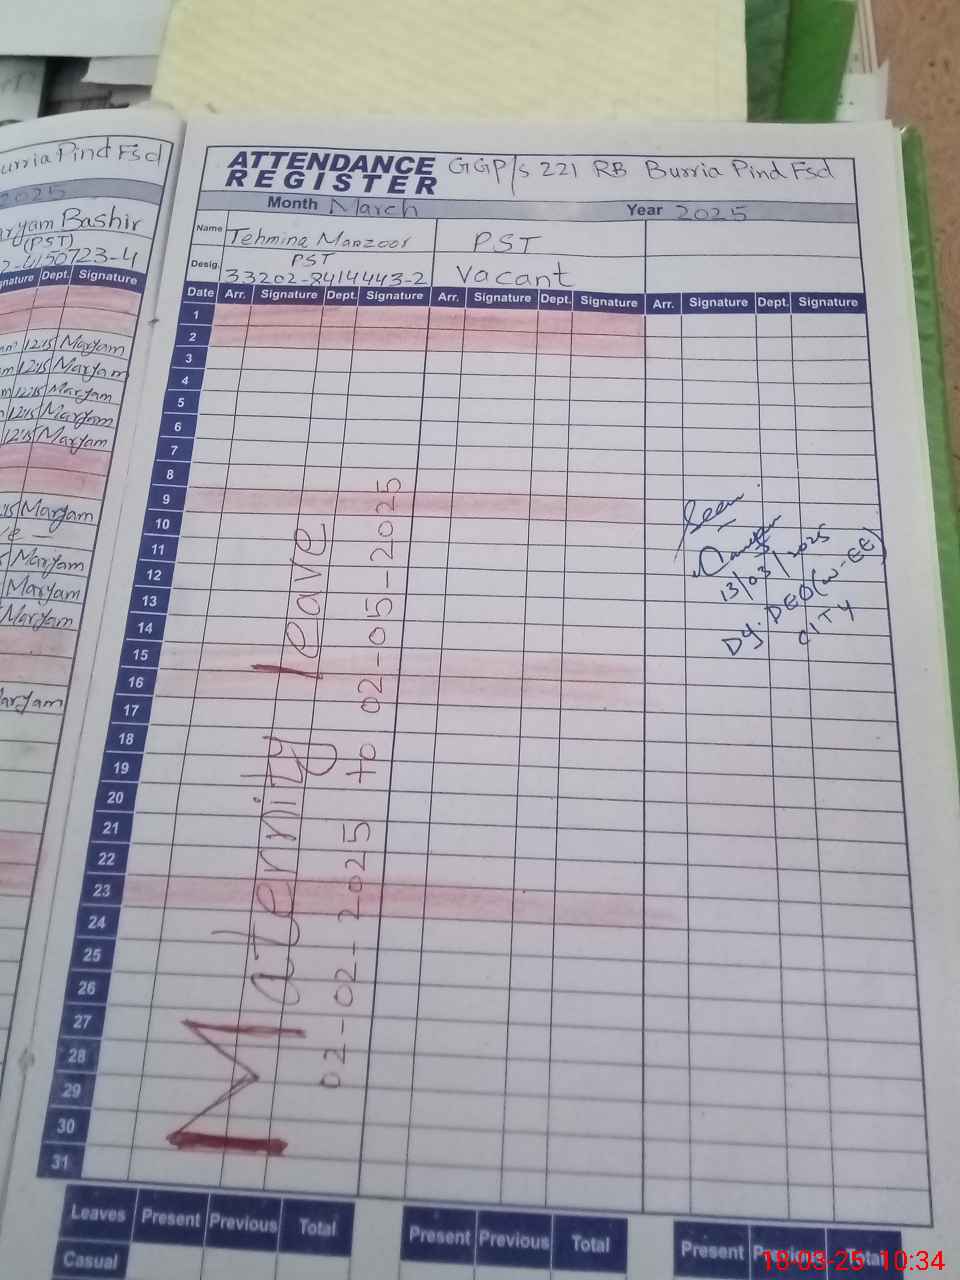 urria Pind Fsd
2025
ryam Bashir
(PST)
2-4150723-4
nature Dept. Signature
am 12:15 Maryam
m 12:15 Maryam
m 12:15 Maryam
12:15 Maryam
12:15 Maryam
Maryam
Maryam
Maryam
Maryam
Maryam
ATTENDANCE REGISTER GGP/s 221 RB Burria Pind Fsd
Month March Year 2025
Name Tehmina Manzoor PST
Desig. PST Vacant
33202-8414443-2
Date Arr. Signature Dept. Signature Arr. Signature Dept. Signature Arr. Signature Dept. Signature
1
2
3
4
5
6
7
8
9
10
11
12
13
14
15
16
17
18
19
20
21
22
23
24
25
26
27
28
29
30
31
Maternity leave
02-02-2025 to 02-05-2025
Seen
13/03/2025
Dy. DEO (W-EE)
CITY
Leaves Present Previous Total Present Previous Total Present Previous Total
Casual
18-03-25 10:34